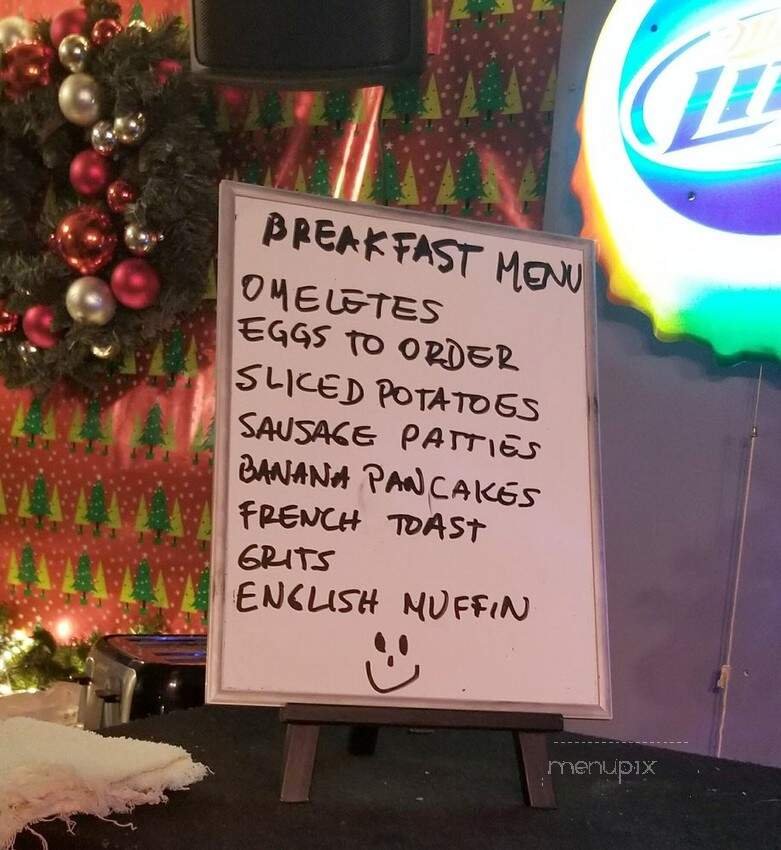 BREAKFAST MENU
OMELETES
EGGS TO ORDER
SLICED POTATOES
SAUSAGE PATTIES
BANANA PANCAKES
FRENCH TOAST
GRITS
ENGLISH MUFFIN
menupix